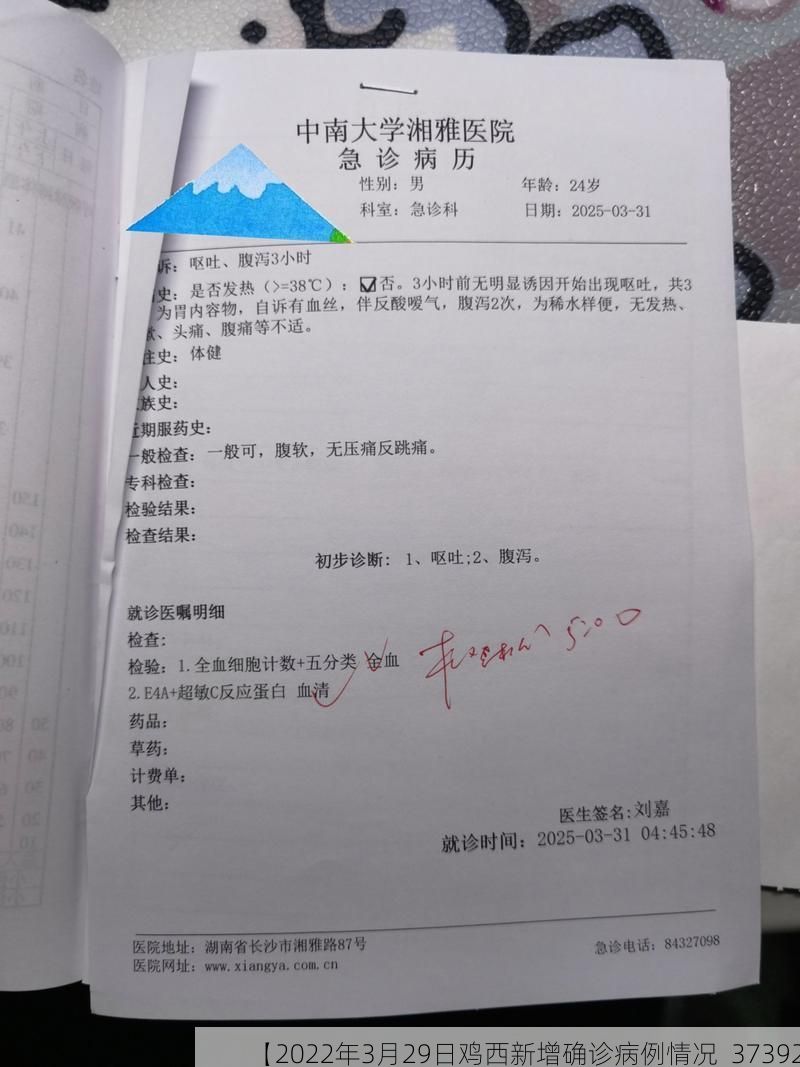 中南大学湘雅医院
急诊病历
性别：男 年龄：24岁
科室：急诊科 日期：2025-03-31
诉：呕吐、腹泻3小时
史：是否发热（>=38℃）：☑否。3小时前无明显诱因开始出现呕吐，共3
为胃内容物，自诉有血丝，伴反酸嗳气，腹泻2次，为稀水样便，无发热、
、头痛、腹痛等不适。
往史：体健
人史：
族史：
近期服药史：
一般检查：一般可，腹软，无压痛反跳痛。
专科检查：
检验结果：
检查结果：
初步诊断：1、呕吐;2、腹泻。
就诊医嘱明细
检查：
检验：1.全血细胞计数+五分类 全血
2.E4A+超敏C反应蛋白 血清
5:00
药品：
草药：
计费单：
其他：
医生签名:刘嘉
就诊时间：2025-03-31 04:45:48
医院地址：湖南省长沙市湘雅路87号 急诊电话：84327098
医院网址：www.xiangya.com.cn
【2022年3月29日鸡西新增确诊病例情况 37392